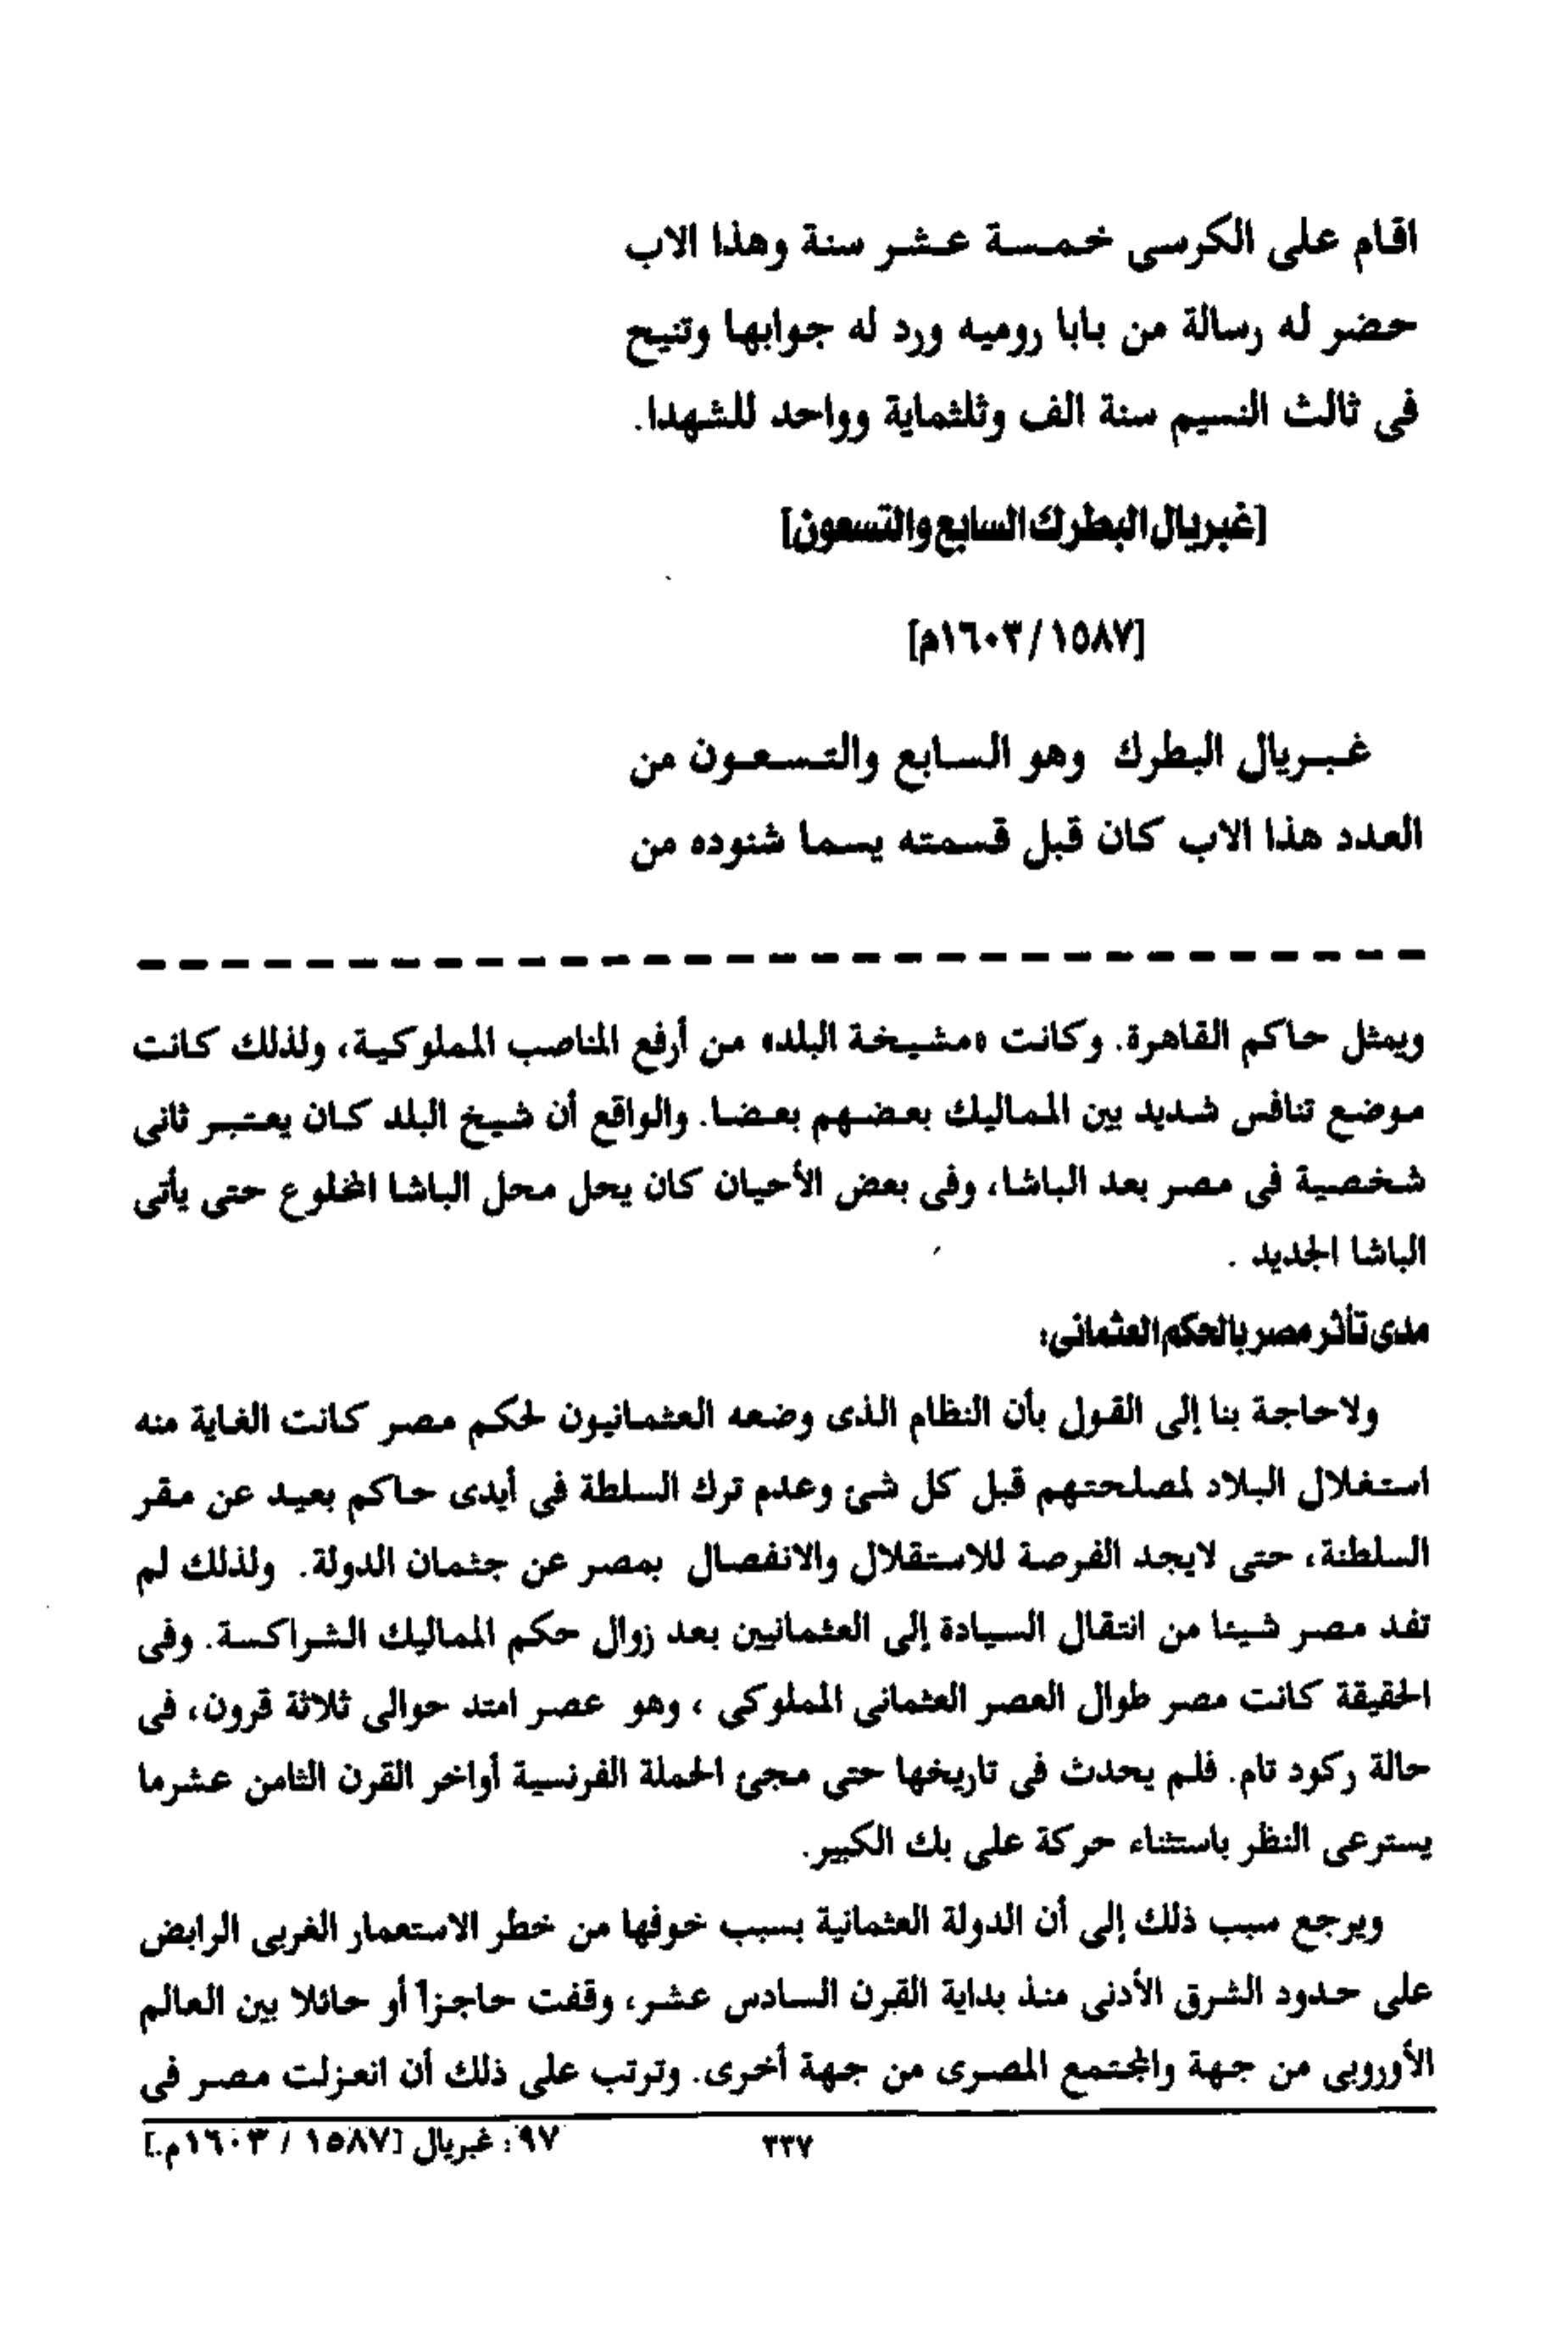 اقام على الكرسى خمسة عشر سنة وهذا الاب
حضر له رسالة من بابا روميه ورد له جوابها وتنيح
فى ثالث النسيم سنة الف وثلثماية وواحد للشهدا.
[غبريال البطرك السابع والتسعون]
[١٥٨٧ / ١٦٠٣م]
غبريال البطرك وهو السابع والتسعون من
العدد هذا الاب كان قبل قسمته يسما شنوده من
ويمثل حاكم القاهرة. وكانت «مشيخة البلد» من أرفع المناصب المملوكية، ولذلك كانت
موضع تنافس شديد بين المماليك بعضهم بعضا. والواقع أن شيخ البلد كان يعتبر ثانى
شخصية فى مصر بعد الباشا، وفى بعض الأحيان كان يحل محل الباشا المخلوع حتى يأتى
الباشا الجديد .
مدى تأثر مصر بالحكم العثمانى:
ولاحاجة بنا إلى القول بأن النظام الذى وضعه العثمانيون لحكم مصر كانت الغاية منه
استغلال البلاد لمصلحتهم قبل كل شئ وعدم ترك السلطة فى أيدى حاكم بعيد عن مقر
السلطنة، حتى لايجد الفرصة للاستقلال والانفصال بمصر عن جثمان الدولة. ولذلك لم
تفد مصر شيئا من انتقال السيادة إلى العثمانيين بعد زوال حكم المماليك الشراكسة. وفى
الحقيقة كانت مصر طوال العصر العثمانى المملوكى ، وهو عصر امتد حوالى ثلاثة قرون، فى
حالة ركود تام. فلم يحدث فى تاريخها حتى مجئ الحملة الفرنسية أواخر القرن الثامن عشرما
يسترعى النظر باستثناء حركة على بك الكبير.
ويرجع سبب ذلك إلى أن الدولة العثمانية بسبب خوفها من خطر الاستعمار الغربى الرابض
على حدود الشرق الأدنى منذ بداية القرن السادس عشر، وقفت حاجزاً أو حائلا بين العالم
الأوروبى من جهة والمجتمع المصرى من جهة أخرى. وترتب على ذلك أن انعزلت مصر فى
٩٧: غبريال [١٥٨٧ / ١٦٠٣م.] ٣٣٧